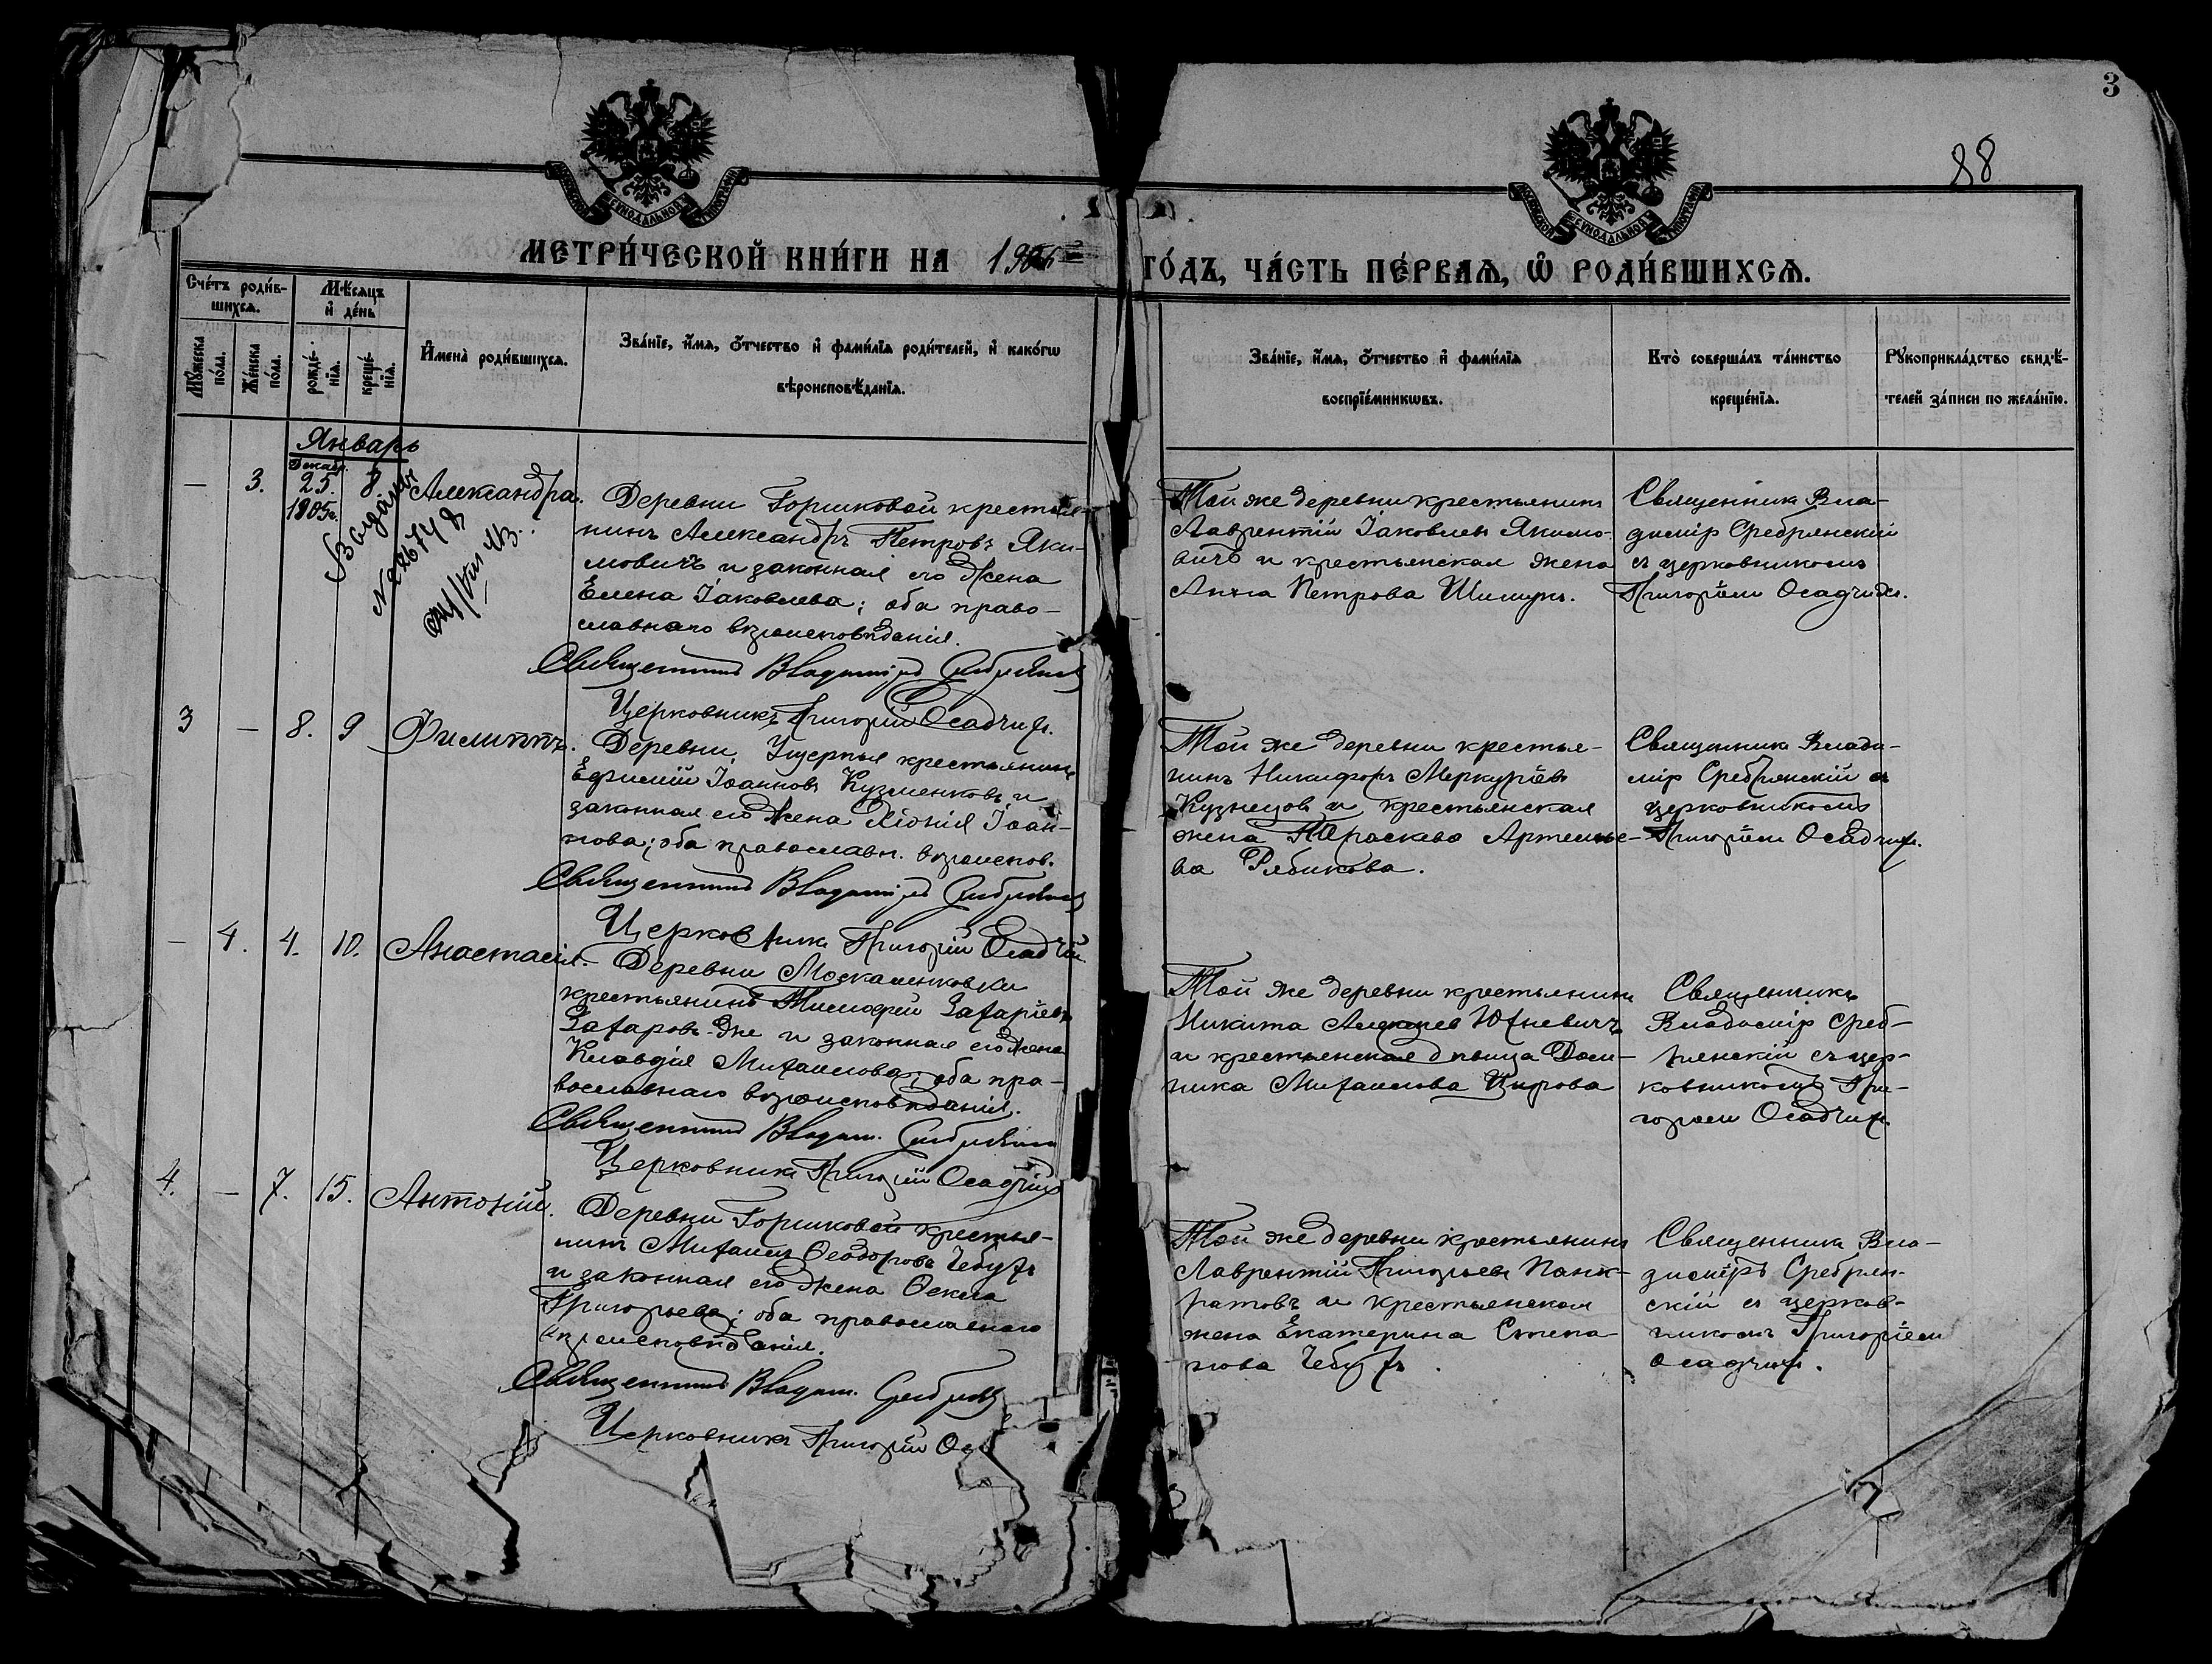 3
88
МОСКОВСКОЙ СѴНОДАЛЬНОЙ ТИПОГРАФІИ
МОСКОВСКОЙ СѴНОДАЛЬНОЙ ТИПОГРАФІИ
МЕТРИ́ЧЕСКОЙ КНИ́ГИ НА 1906
ГО́ДЪ, ЧА́СТЬ ПЕ́РВАѦ, Ѿ РОДИ́ВШИХСѦ.
Сче́тъ роди́в-
шихсѧ.
Мꙋ́жеска по́ла.
Же́нска по́ла.
Мѣ́сѧцъ
и҆ де́нь
рожде́-
нїѧ.
креще́-
нїѧ.
И҆мена̀ роди́вшихсѧ.
Зва́нїе, и҆́мѧ, ѻ҆́тчество и҆ фами́лїѧ роди́телей, и҆ како́гѡ
вѣроисповѣ́данїѧ.
Зва́нїе, и҆́мѧ, ѻ҆́тчество и҆ фами́лїѧ
воспрїе́мникѡвъ.
Кто̀ соверша́лъ та́инство
креще́нїѧ.
Рꙋкоприкла́дство свидѣ́-
телей за́писи по жела́нїю.
Январь
— 3. Декабр. 25. 1905г. 8. Александра.
Выдана
Деревни Горшковой крестья-
нинъ Александръ Петровъ Яки-
мовичъ и законная его жена
Елена Іаковлева; оба право-
славнаго вѣроисповѣданія.
Священникъ Владиміръ Сребрянскій
Церковникъ Григорій Осадчихъ.
Той же деревни крестьянинъ
Лаврентій Іаковлевъ Якимо-
вичъ и крестьянская жена
Анна Петрова Шишунъ.
Священникъ Вла-
диміръ Сребрянскій
съ церковникомъ
Григоріемъ Осадчихъ.
3 — 8. 9 Филиппъ.
Деревни Ущерпья крестьянинъ
Ефимій Іоанновъ Кузменковъ и
законная его жена Іоан-
нова; оба православн. вѣроисповѣ.
Священникъ Владиміръ Сребрянскій
Церковникъ Григорій Осадчій
Той же деревни крестья-
нинъ Никифоръ Меркуріевъ
Кузнецовъ и крестьянская
жена Параскева Артемье-
ва Рябикова.
Священникъ Влади-
міръ Сребрянскій съ
церковникомъ
Григоріемъ Осадчихъ.
— 4. 4. 10. Анастасія.
Деревни Москаленковки
крестьянинъ Тимофей Захаріевъ
Захаровъ-же и законная его жена
Клавдія Михаилова; оба пра-
вославнаго вѣроисповѣданія.
Священникъ Владим. Сребрянскій
Церковникъ Григорій Осадчій
Той же деревни крестьянинъ
Никита Алексѣевъ Юхневичъ
и крестьянская дѣвица Дом-
ника Михаилова
Священникъ
Владиміръ Среб-
рянскій съ цер-
ковникомъ Гри-
горіем Осадчихъ.
4. — 7. 15. Антоній.
Деревни Горшковой крестья-
нинъ Михаилъ Ѳеодоровъ Чебухъ
и законная его жена Ѳекла
Григорьева; оба православнаго
вѣроисповѣданія.
Священникъ Владим. Сребрян
Церковникъ Григорій Ос
Той же деревни крестьянинъ
Лаврентій Григорьевъ Панк-
ратовъ и крестьянская
жена Екатерина Степа-
нова Чебухъ.
Священникъ Вла-
диміръ Сребрян-
скій съ церков-
никомъ Григоріемъ
Осадчихъ.